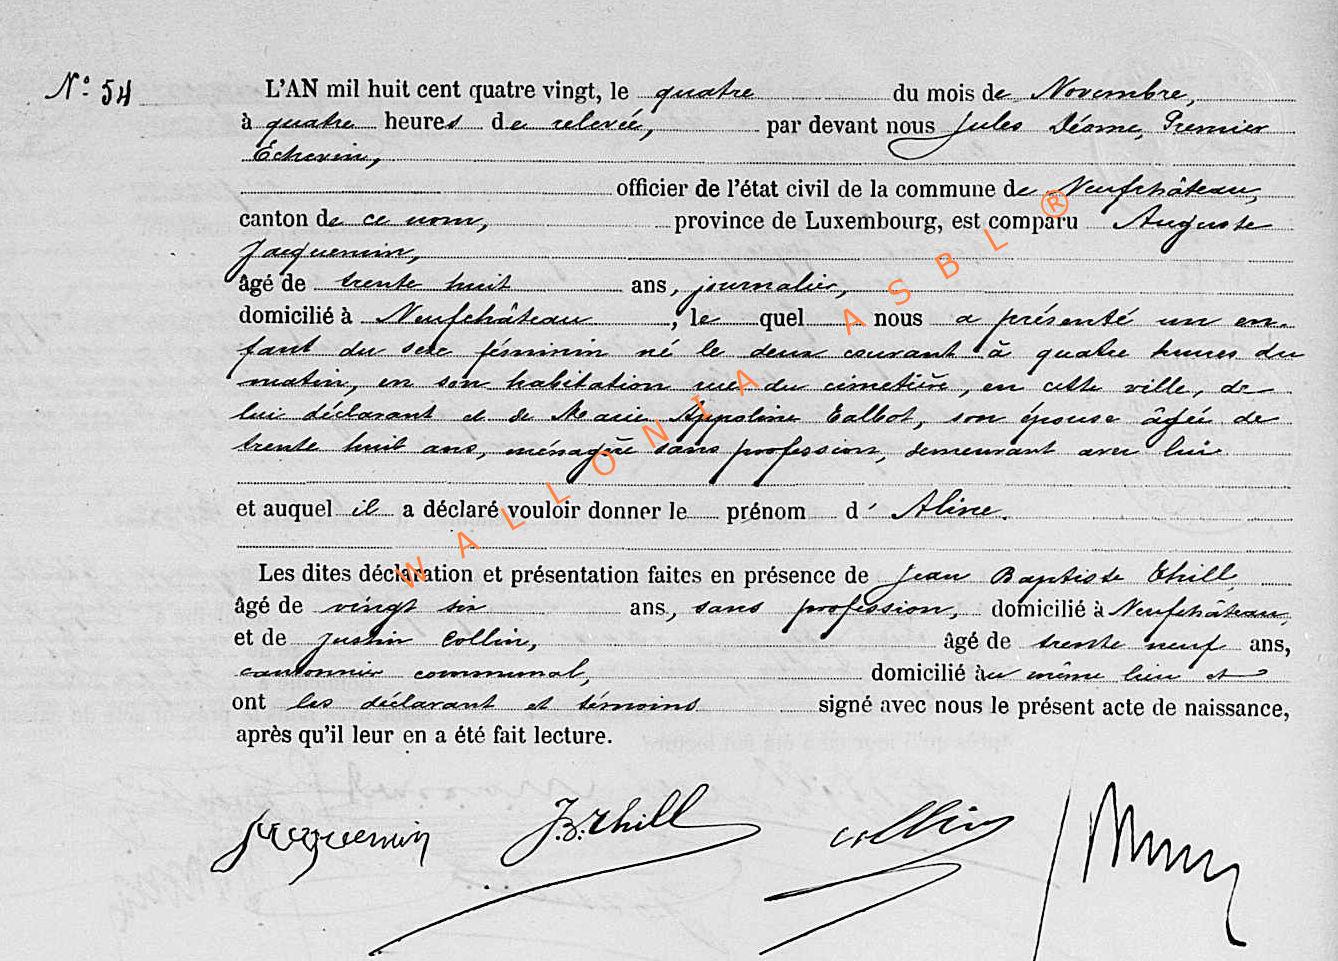 N° 54
L'AN mil huit cent quatre vingt, le quatre du mois de Novembre,
à quatre heures de relevée, par devant nous Jules Déome, Premier
Echevin,
officier de l'état civil de la commune de Neufchâteau,
canton de ce nom, province de Luxembourg, est comparu Auguste
Jacquemin,
âgé de trente huit ans, journalier,
domicilié à Neufchâteau, le quel nous a présenté un en-
fant du sexe féminin né le deux courant à quatre heures du
matin, en son habitation rue du cimetière, en cette ville, de
lui déclarant et de Marie Appoline Talbot, son épouse âgée de
trente huit ans, ménagère sans profession, demeurant avec lui
et auquel il a déclaré vouloir donner le prénom d' Aline.
Les dites déclaration et présentation faites en présence de Jean Baptiste Thill,
âgé de vingt six ans, sans profession, domicilié à Neufchâteau,
et de Justin Collin, âgé de trente neuf ans,
cantonnier communal, domicilié au même lieu et
ont les déclarant et témoins signé avec nous le présent acte de naissance,
après qu'il leur en a été fait lecture.
Jacquemin J.B. Thill Collin
WALLONIA ASBL ®